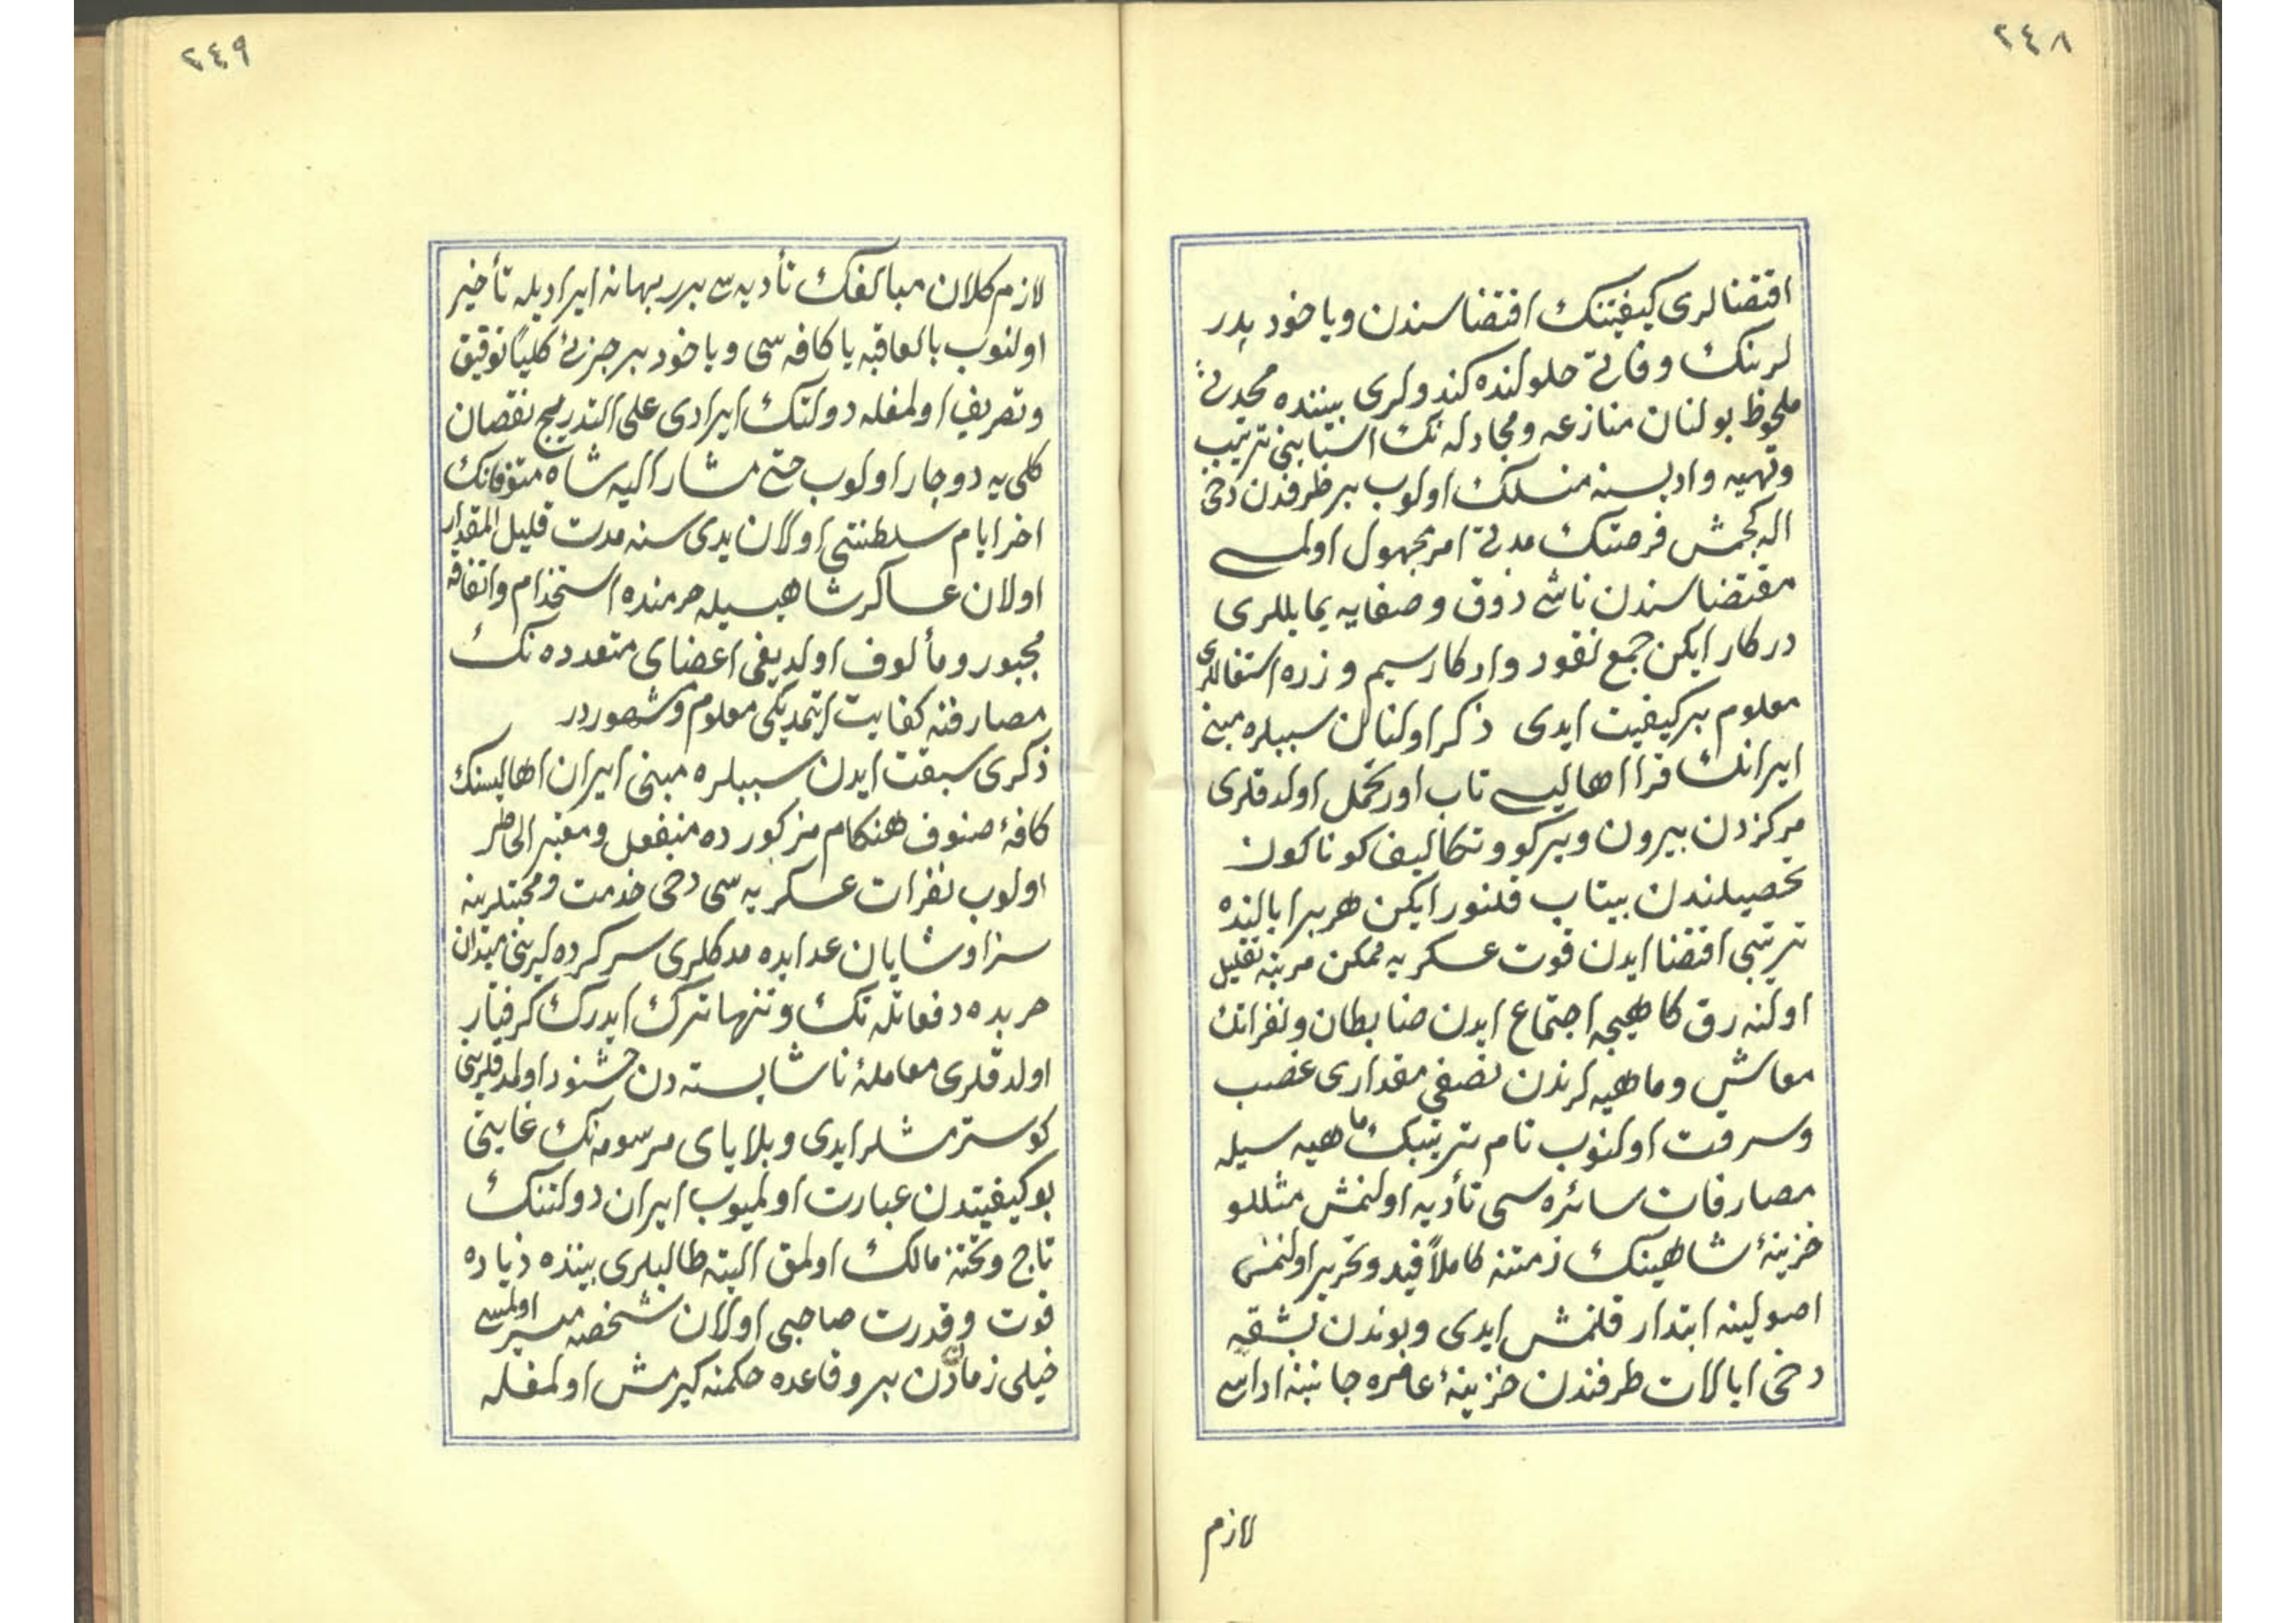 ٢٤٨
اقتضالری كیفیتنك اقتضاسندن ویاخود پدر
لرینك وفاتی حلولنده كندولری بیننده محدثی
ملحوظ بولنان منازعه ومجادله نك اسبابنی ترتیب
وتهیه وادبسنه منسلك اولوب بر طرفدن دخی
اله كچمش فرصتنك مدتی امر مجهول اولمسی
مقتضاسندن ناشی ذوق وصفایه یمایللری
دركار ایكن جمع نقود وادكار سیم وزره اشتغاللری
معلوم بر كیفیت ایدی ذكر اولنان سببلره مبنی
ایرانك قرا اهالیسی تاب اور تحمل اولدقلری
مركزدن بیرون ویركو وتكالیف كوناكون
تحصیلندن بیتاب قلنور ایكن هر بر ایالنده
ترتیبی اقتضا ایدن قوت عسكریه ممكن مرتبه تقلیل
اولنه رق كاهیجه اجتماع ایدن ضابطان ونفراتك
معاش وماهیه لرندن نصفی مقداری غصب
وسرقت اولنوب تام ترتیبك ماهیه سیله
مصارفات سائره سی تأدیه اولنمش مثللو
خزینهٔ شاهینك ذمتنه كاملاً قید وتحریر اولنمش
اصولینه ابتدار قلنمش ایدی وبوندن بشقه
دخی ایالات طرفندن خزینهٔ عامره جانبنه اداسی
لازم
٢٤٩
لازم كلان مبالغك تأدیه سی برر بهانه ایرادیله تأخیر
اولنوب بالعاقبه یا كافه سی ویاخود بر جزئی كلیاً توقیق
وتصریف اولمغله دولتك ایرادی علی التدریج نقصان
كلی یه دوچار اولوب حتی مشار الیه شاه متوفانك
اخر ایام سلطنتی اولان یدی سنه مدت قلیل المقدار
اولان عساكر شاهیسیله حرمنده استخدام واتفاقه
مجبور ومألوف اولدیغی اعضای متعدده نك
مصارفنه كفایت ایتمدیكی معلوم ومشهوردر
ذكری سبقت ایدن سببلره مبنی ایران اهالیسنك
كافهٔ صنوف هنكام مزكورده منفعل ومغبر الخاطر
اولوب نفرات عسكریه سی دخی خدمت ومحبتلرینه
سزا وشایان عد ایده مدكلری سركرده لرینی میدان
حربده دفعاتله تك وتنها ترك ایدرك كرفتار
اولدقلری معاملهٔ ناشایسته دن خشنود اولمدقلرینی
كوسترمشلر ایدی وبلایای مرسومه نك غایتی
بو كیفیتدن عبارت اولمیوب ایران دولتنك
تاج وتختنه مالك اولمق البته طالبلری بیننده زیاده
قوت وقدرت صاحبی اولان شخصه میسر اولمسی
خیلی زماندن برو قاعده حكمنه كیرمش اولمغله